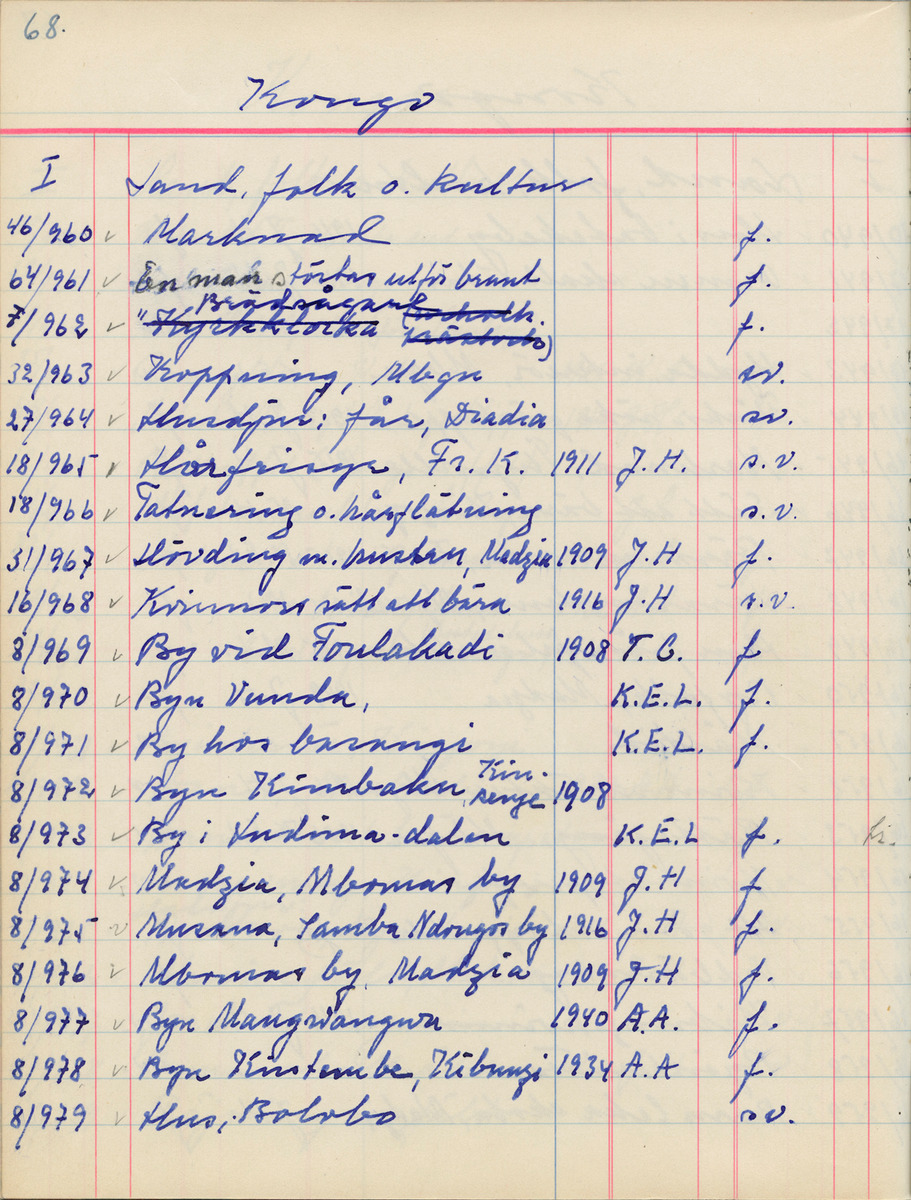 68.
Kongo
I Land, folk o. kultur
46/960 v Marknad f.
64/961 v En man störtas utför brant f.
Brädsågare
7/962 v "Kyrkklocka f.
32/963 v Koppning, Mbgn sv.
27/964 v Husdjur: får, Diadia sv.
18/965 v Hårfrisyr, Fr. K. 1911 J.H. s.v.
18/966 v Tatuering o. hårflätning s.v.
31/967 v Hövding m. hustru, Madzia 1909 J.H f.
16/968 v Kvinnors sätt att bära 1916 J.H s.v.
8/969 v By vid Foulakadi 1908 T.C. f
8/970 v Byn Vunda, K.E.L. f.
8/971 v By hos basangi K.E.L. f.
8/972 v Byn Kimbaku, Kinsenje 1908
8/973 v By i Ludima-dalen K.E.L f. li.
8/974 v Madzia, Mbomas by 1909 J.H f
8/975 v Musana, Samba Ndongos by 1916 J.H f.
8/976 v Mbomas by, Madzia 1909 J.H f.
8/977 v Byn Mangwangwa 1940 A.A. f.
8/978 v Byn Kinstembe, Kibunzi 1934 A.A f.
8/979 v Hus, Bolobo sv.